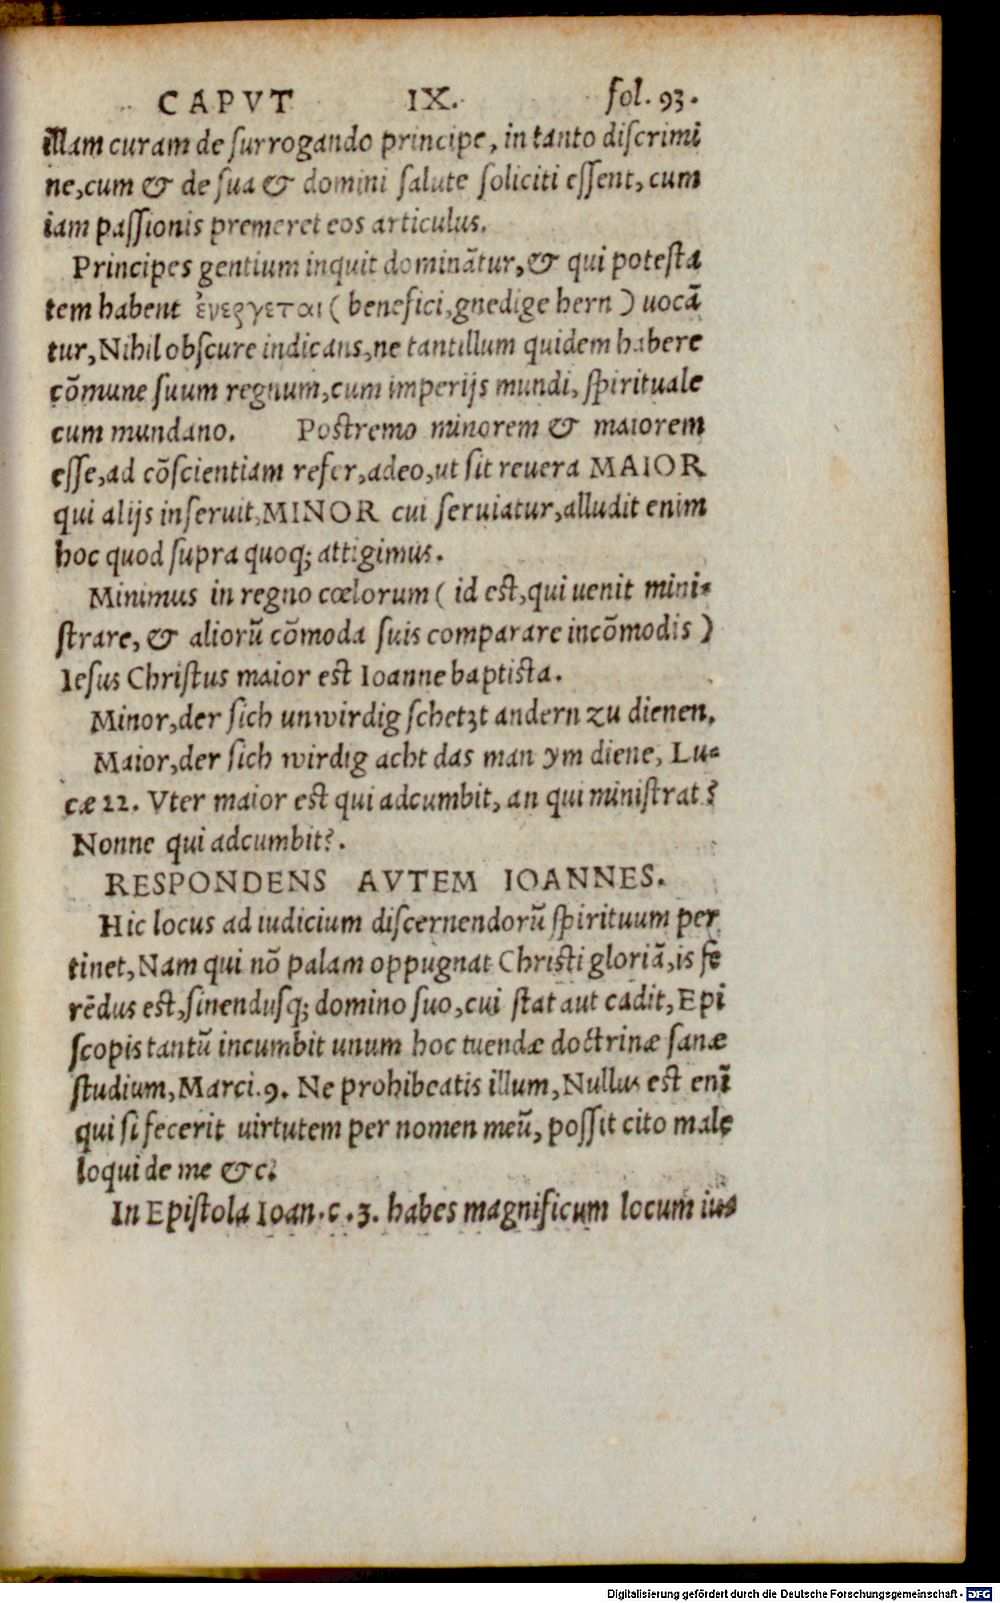 CAPVT IX. fol. 93.
illam curam de surrogando principe, in tanto discrimi
ne, cum & de sua & domini salute soliciti essent, cum
iam passionis premeret eos articulus.
Principes gentium inquit dominãtur, & qui potesta
tem habent ἐυεργεται ( benefici, gnedige hern ) uocã
tur, Nihil obscure indicans, ne tantillum quidem habere
cõmune suum regnum, cum imperijs mundi, spirituale
cum mundano. Postremo minorem & maiorem
esse, ad cõscientiam refer, adeo, ut sit reuera MAIOR
qui alijs inseruit, MINOR cui seruiatur, alludit enim
hoc quod supra quoq; attigimus.
Minimus in regno cœlorum ( id est, qui uenit mini-
strare, & aliorũ cõmoda suis comparare incõmodis )
Iesus Christus maior est Ioanne baptista.
Minor, der sich unwirdig schetzt andern zu dienen,
Maior, der sich wirdig acht das man ym diene, Lu-
cæ 22. Vter maior est qui adcumbit, an qui ministrat?
Nonne qui adcumbit?.
RESPONDENS AVTEM IOANNES.
Hic locus ad iudicium discernendorũ spirituum per
tinet, Nam qui nõ palam oppugnat Christi gloriã, is fe
rẽdus est, sinendusq; domino suo, cui stat aut cadit, Epi
scopis tantũ incumbit unum hoc tuendæ doctrinæ sanæ
studium, Marci. 9. Ne prohibeatis illum, Nullus est enĩ
qui si fecerit uirtutem per nomen meũ, possit cito male
loqui de me &c.
In Epistola Ioan. c. 3. habes magnificum locum ius
Digitalisierung gefördert durch die Deutsche Forschungsgemeinschaft - DFG